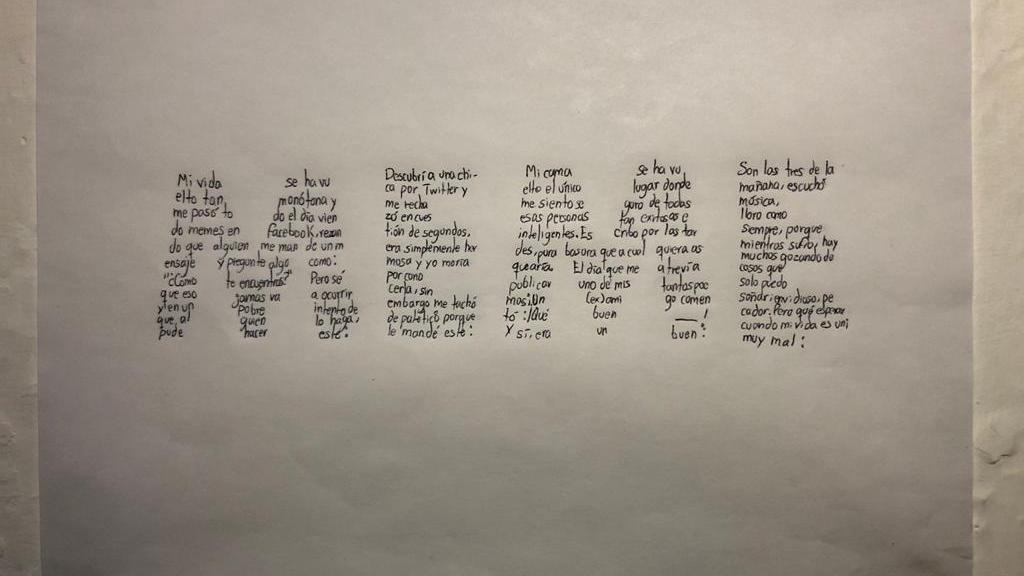 Mi vida se ha vu
elto tan monótona y
me pasó to do el día vien
do memes en Facebook, rezan
do que alguien me man de un m
ensaje y pregunte algo como:
"¿Cómo te encuentras?" Pero sé
que eso jamas va a ocurrir
y en un pobre intento de
que al guien lo haga,
pude hacer este:
Descubrí a una chi-
ca por Twitter y
me recha
zó en cues
tión de segundos,
era simplemente her
mosa y yo moría
por cono
cerla, sin
embargo me tachó
de patético porque
le mandé este:
Mi cama se ha vu
elto el único lugar donde
me siento se guro de todas
esas personas tan exitosas e
inteligentes. Es cribo por las tar
des, pura basura que a cual quiera as
quearía. El día que me atrevía
publicar uno de mis tantos poe
mas: Un (ex) ami go comen
tó: ¡Qué buen __!
Y sí, era un buen:
Son las tres de la
mañana, escuchó
música,
lloro como
siempre, porque
mientras sufro, hay
muchos gozando de
cosas que
solo puedo
soñar, envidioso, pe
cador. Pero qué esperar
cuando mi vida es un
muy mal: